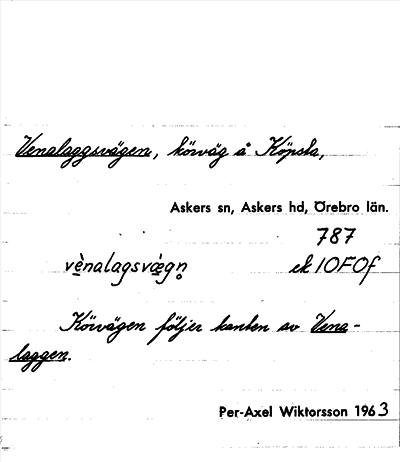 Venalaggsvägen, körväg å Köpsta,
Askers sn, Askers hd, Örebro län.
787
vènalagsvæ̀gn̥ ek 10F0f
Körvägen följer kanten av Vena-
laggen.
Per-Axel Wiktorsson 1963